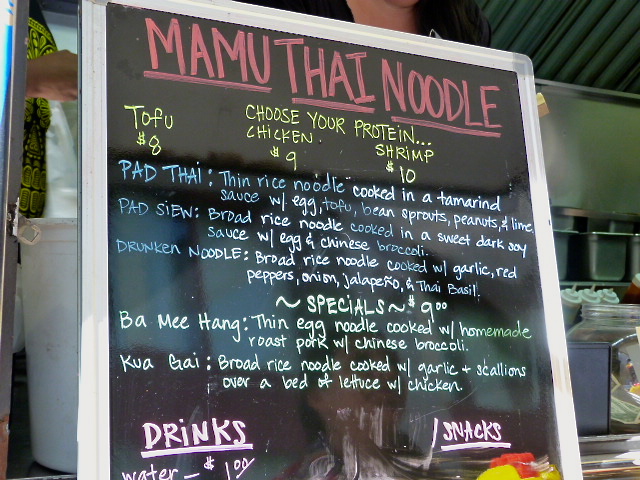 MAMU THAI NOODLE
CHOOSE YOUR PROTEIN...
TOFU CHICKEN SHRIMP
$8 $9 $10
PAD THAI: Thin rice noodle cooked in a tamarind
sauce w/ egg, tofu, bean sprouts, peanuts, & lime
PAD SIEW: Broad rice noodle cooked in a sweet dark soy
sauce w/ egg & chinese broccoli.
DRUNKEN NOODLE: Broad rice noodle cooked w/ garlic, red
peppers, onion, jalapeño, & Thai Basil!
~ SPECIALS ~ $9.00
Ba Mee Hang: Thin egg noodle cooked w/ homemade
roast pork w/ chinese broccoli.
Kua Gai: Broad rice noodle cooked w/ garlic + scallions
over a bed of lettuce w/ chicken.
DRINKS SNACKS
water - $1.00